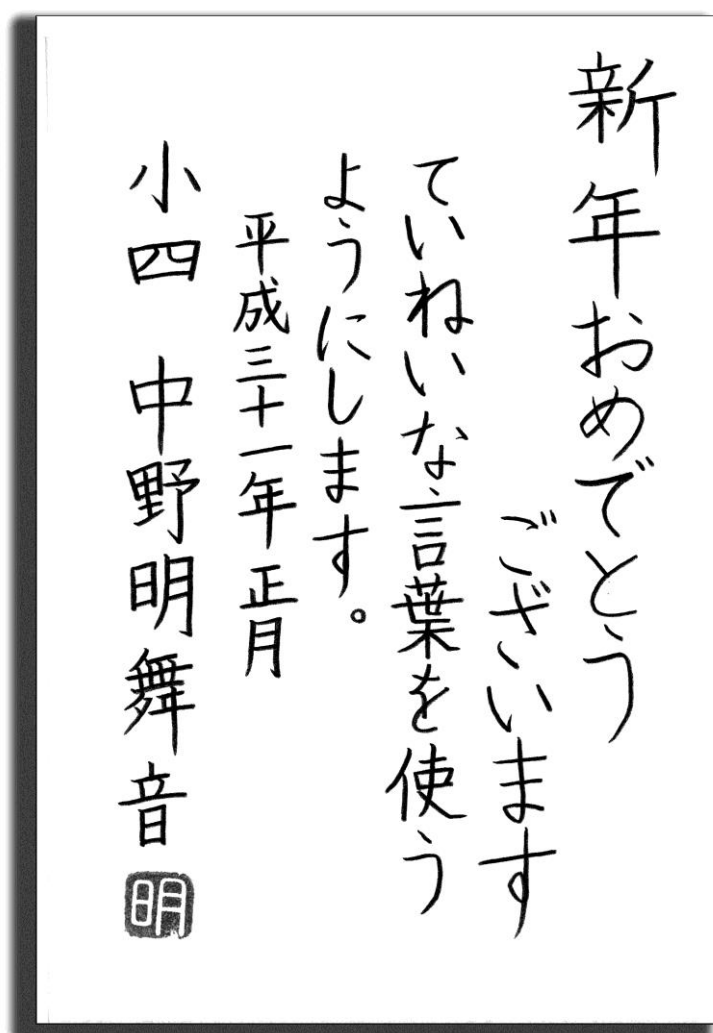 新年おめでとう
ございます
ていねいな言葉を使う
ようにします。
平成三十一年正月
小四 中野明舞音
明